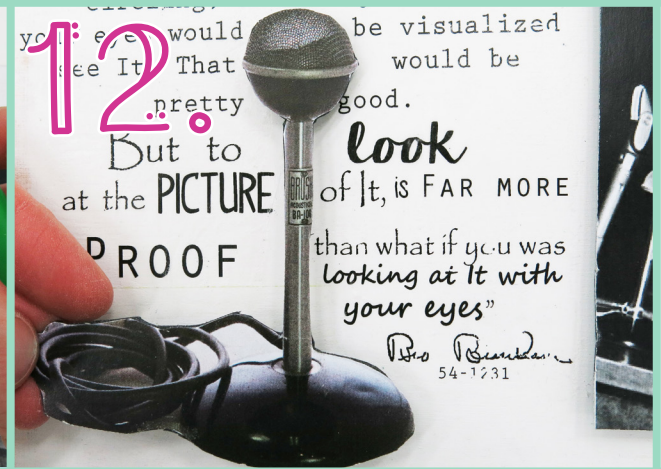 12.
your eyes would be visualized
see It. That would be
pretty good.
But to look
at the PICTURE of It, is FAR MORE
PROOF than what if you was
looking at It with
your eyes"
Bro Branham
54-1231
BRUSH